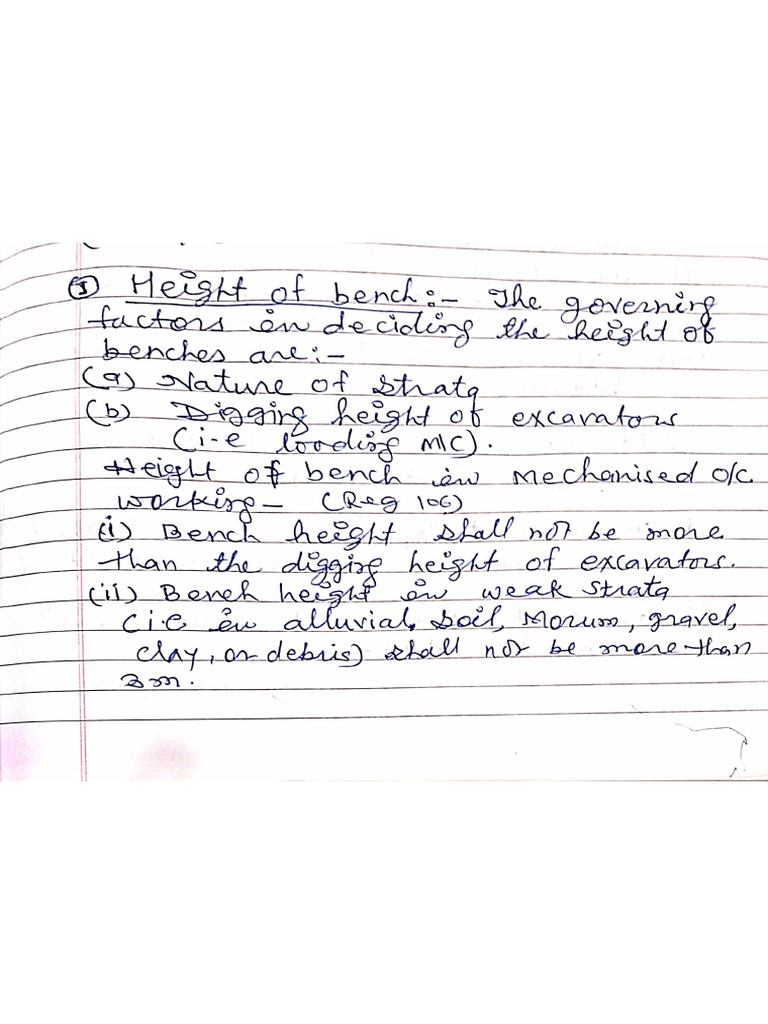 ③ Height of bench:- The governing
factors in deciding the height of
benches are:-
(a) Nature of strata
(b) Digging height of excavators
(i-e loading M/C).
Height of bench in Mechanised o/c
working- (Reg 106)
(i) Bench height shall not be more
than the digging height of excavators.
(ii) Bench height in weak strata
(i.e in alluvial, soil, Morum, gravel,
clay, or debris) shall not be more than
3m.